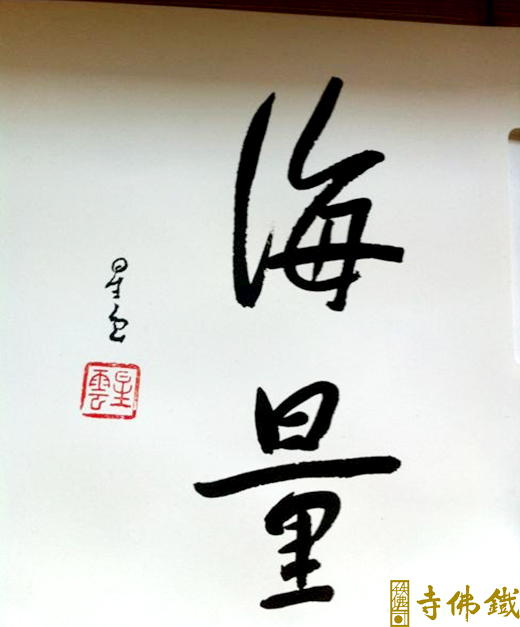 海量
星云
星雲
鐵佛寺